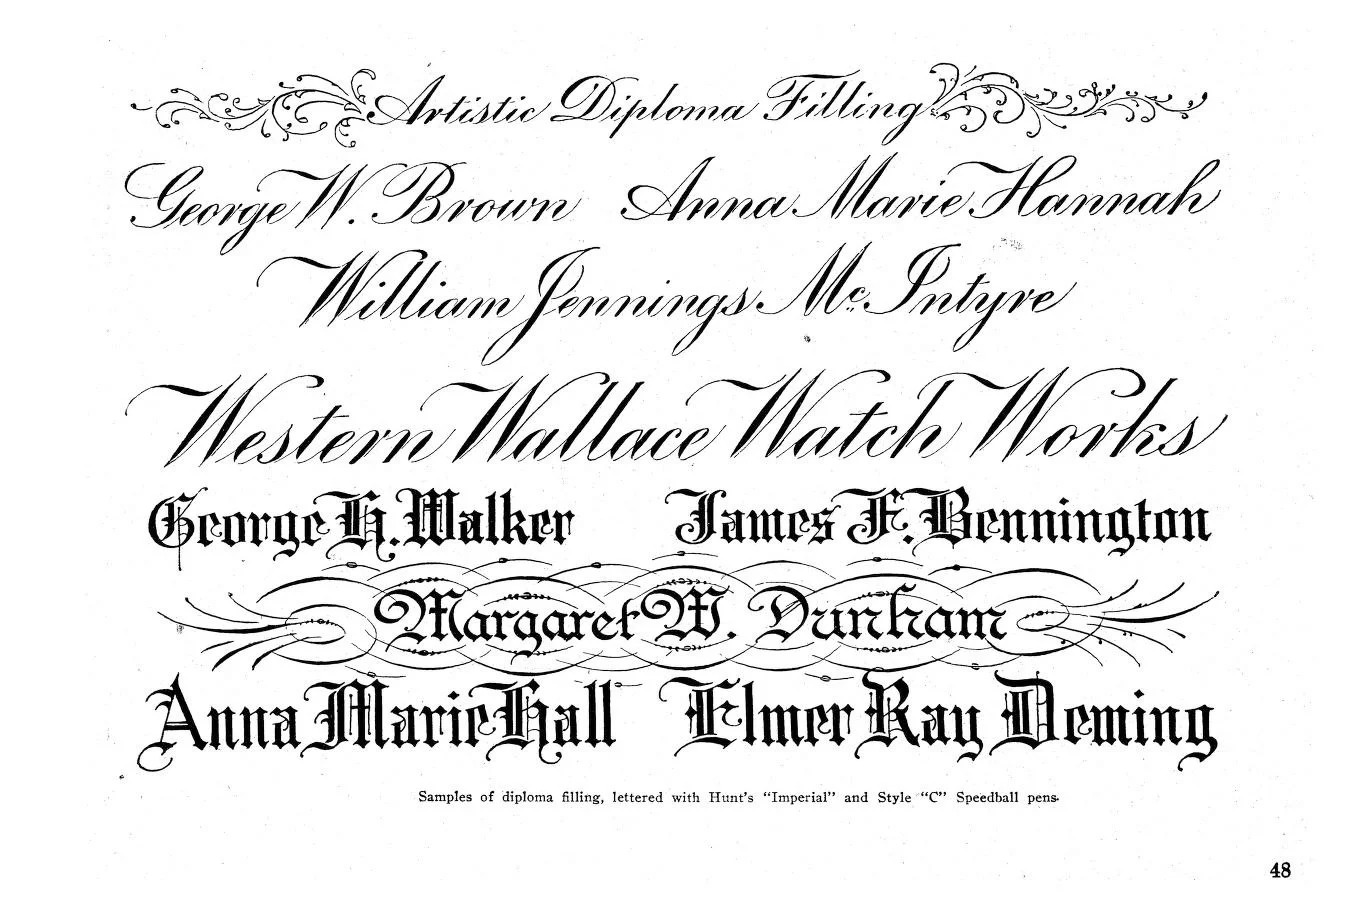 Artistic Diploma Filling
George W. Brown Anna Marie Hannah
William Jennings Mc. Intyre
Western Wallace Watch Works
George H. Walker James F. Bennington
Margaret W. Dunham
Anna Marie Hall Elmer Ray Deming
Samples of diploma filling, lettered with Hunt's "Imperial" and Style "C" Speedball pens.
48